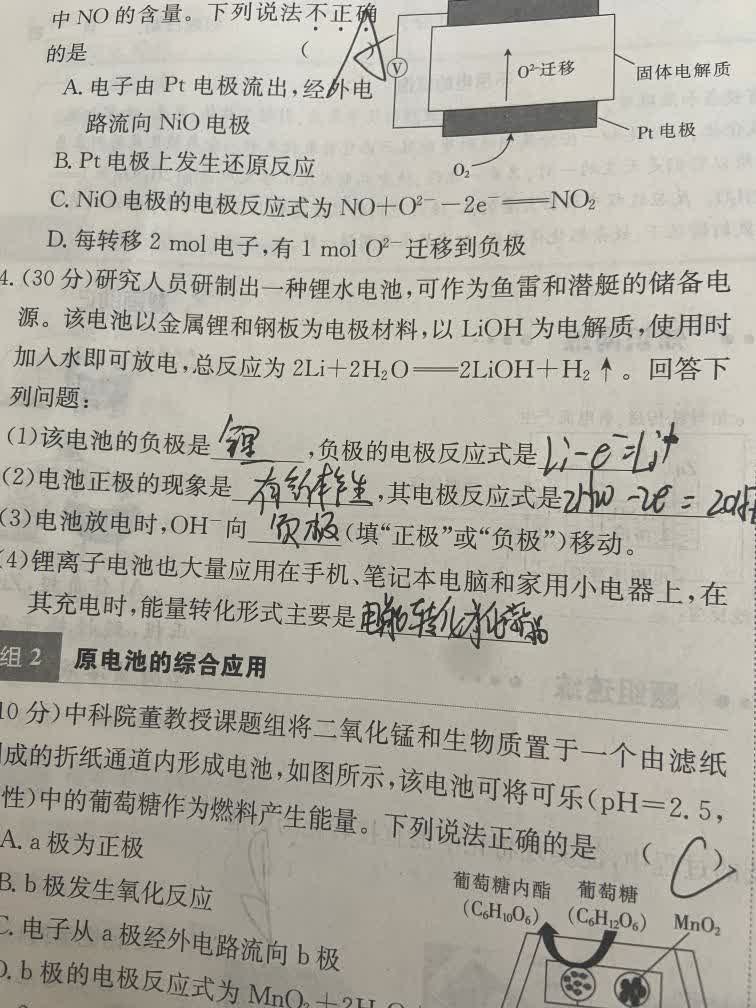 中 NO 的含量。下列说法不正确
的是 ( A )
A. 电子由 Pt 电极流出,经外电
路流向 NiO 电极
B. Pt 电极上发生还原反应
C. NiO 电极的电极反应式为 NO+O²⁻-2e⁻══NO₂
D. 每转移 2 mol 电子,有 1 mol O²⁻ 迁移到负极
V
O²⁻迁移
固体电解质
Pt 电极
O₂
4. (30 分)研究人员研制出一种锂水电池,可作为鱼雷和潜艇的储备电
源。该电池以金属锂和钢板为电极材料,以 LiOH 为电解质,使用时
加入水即可放电,总反应为 2Li+2H₂O══2LiOH+H₂↑。回答下
列问题:
(1)该电池的负极是 锂 ,负极的电极反应式是 Li-e⁻=Li⁺
(2)电池正极的现象是 有气体产生 ,其电极反应式是
(3)电池放电时,OH⁻向 负极 (填“正极”或“负极”)移动。
(4)锂离子电池也大量应用在手机、笔记本电脑和家用小电器上,在
其充电时,能量转化形式主要是 电能转化为化学能
组 2 原电池的综合应用
10 分)中科院董教授课题组将二氧化锰和生物质置于一个由滤纸
成的折纸通道内形成电池,如图所示,该电池可将可乐(pH=2.5,
性)中的葡萄糖作为燃料产生能量。下列说法正确的是 ( C )
A. a 极为正极
B. b 极发生氧化反应
C. 电子从 a 极经外电路流向 b 极
D. b 极的电极反应式为 MnO₂+2H
葡萄糖内酯 葡萄糖
(C₆H₁₀O₆) (C₆H₁₂O₆) MnO₂